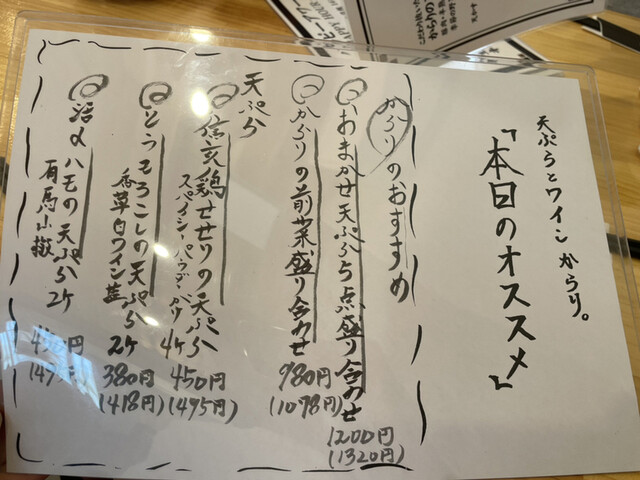 天ぷらとワイン からり。
『本日のオススメ』
からりのおすすめ
おまかせ天ぷら5点盛り合わせ
1200円
(1320円)
からりの前菜盛り合わせ
980円
(1078円)
天ぷら
信玄鶏せせりの天ぷら
スパイシーパウダーがり
4ケ
450円
(495円)
とうもろこしの天ぷら
香草白ワイン蒸
2ケ
380円
(418円)
活〆ハモの天ぷら
有馬山椒 2ケ
450円